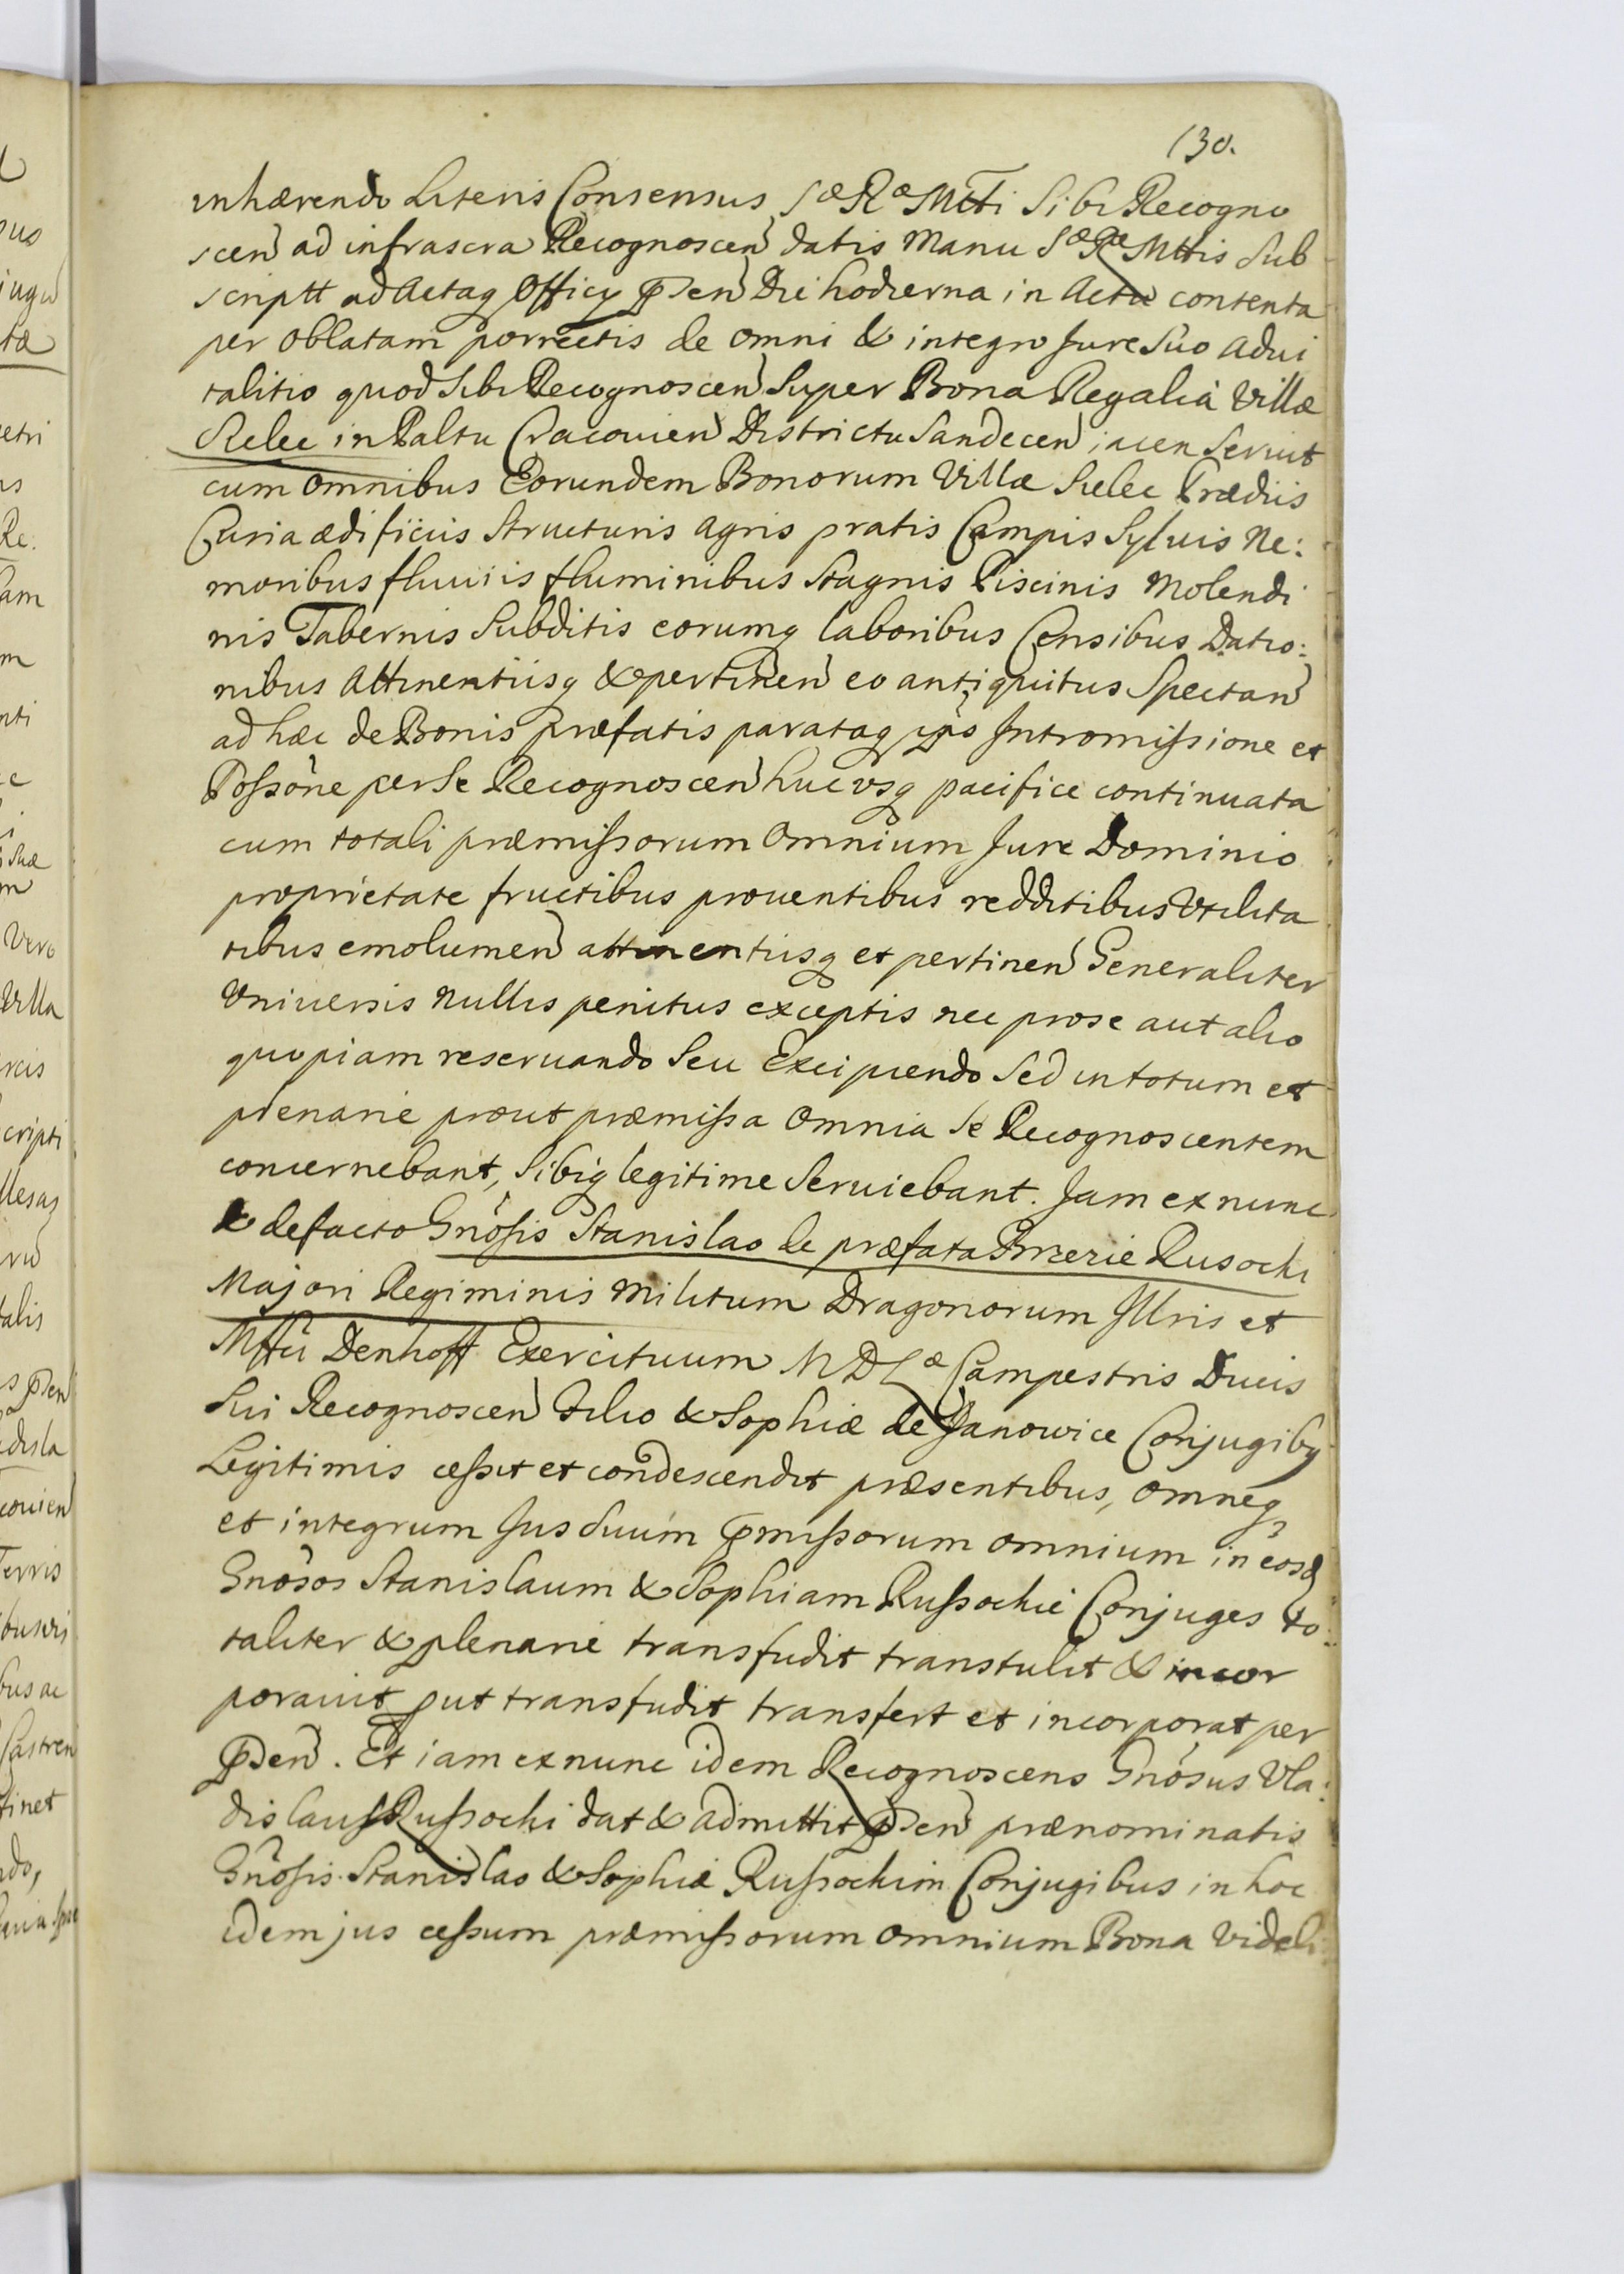 130.
inhærendo Literis Consensus Sæ Ræ Mtti Sibi Recogno
scen ad infrascra Recognoscen datis Manu Sæ Ræ Mttis Sub
scriptt ad Actaq Officy pñsen Die hodierna in Acta contenta
per Oblatam porrectis de omni & integro Jure Suo Advi
talitio quod Sibi Recognoscen Super Bona Regalia Villæ
Sielec in Paltu Cracouien Districtu Sandecen iacen Seruit
cum Omnibus Eorundem Bonorum Villæ Sielec Prædiis
Curia ædificiis Structuris Agris pratis Campis Syluis Ne:
moribus fluuiis fluminibus Stagnis Piscinis Molendi
nis Tabernis Subditis eorumq laboribus Censibus Datio:
nibus Attinentiisq & pertinen eo antiquitus Spectan
ad hæc de Bonis præfatis parataq Intromissione et
Possone per Se Recognoscen huc vsq pacifice continuata
cum totali præmissorum Omnium Jure Dominio
proprietate fructibus prouentibus redditibus Vtilita
tibus emolumen attinentiisq et pertinen Generaliter
Vniuersis Nullis penitus exceptis nec pro se aut alio
quopiam reseruando Seu Excipiendo Sed in totum et
plenarie prout præmissa Omnia Se Recognoscentem
concernebant, Sibiq legitime Seruiebant. Jam ex nunc
& de facto Gnosis Stanislao de præfata Brzezie Rusocki
Majori Regiminis Militum Dragonorum Illris et
Mffci Denhoff Exercituum M D L æ Campestris Ducis
Sui Recognoscen Filio & Sophiæ de Janowice Conjugibq
Legitimis cessit et condescendit præsentibus, Omneq
et integrum Jus Suum pmissorum omnium in eosd
Gnosos Stanislaum & Sophiam Russockie Conjuges to:
taliter & plenarie transfudit transtulit & incor
porauit put transfudit transfert et incorporat per
pñsen. Et iam ex nunc idem Recognoscens Gnosus Vla:
dislaus Russocki dat & admittit pñsen prænominatis
Gnosis Stanislao & Sophiæ Russockim Conjugibus in hoc
idem jus cessum præmissorum Omnium Bona Videli